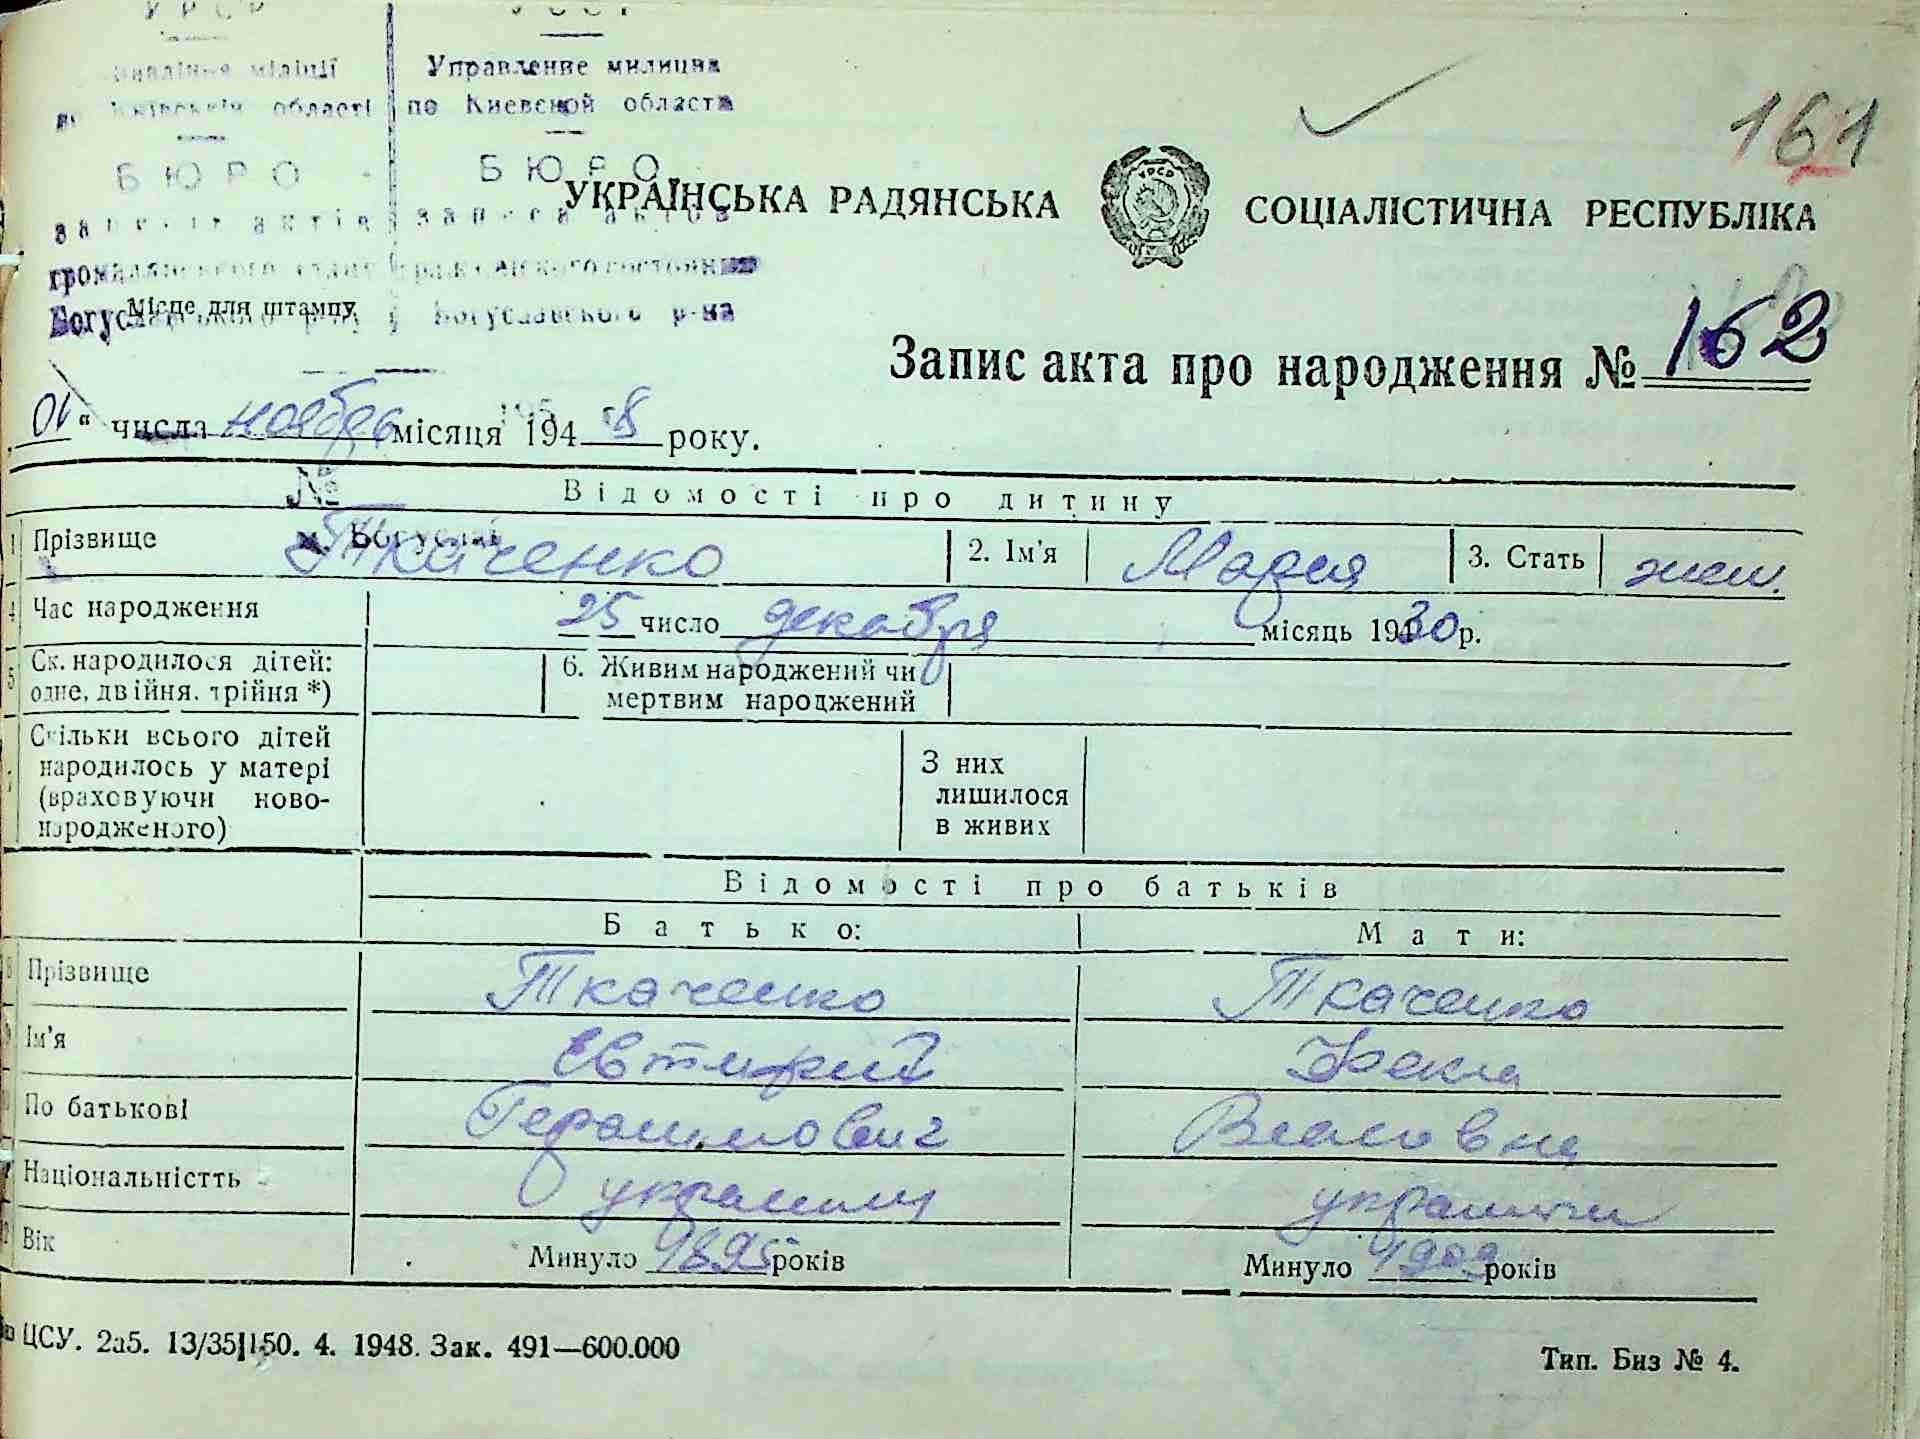 УРСР УССР
Управление милиции
Київській області по Киевской области
БЮРО БЮРО
161
УКРАЇНСЬКА РАДЯНСЬКА СОЦІАЛІСТИЧНА РЕСПУБЛІКА
УРСР
запису актів записа актов
громадянського стану гражданского состояния
Місце для штампу
Богуславського р-ну Богуславского р-на
Запис акта про народження № 162
01 " числа ноября місяця 194 8 року.
№
Відомості про дитину
м. Богуслав
1 Прізвище Ткаченко 2. Ім'я Мария 3. Стать жен.
4 Час народження 25 число декабря місяць 1930 р.
5 Ск. народилося дітей: 6. Живим народжений чи
одне, двійня, трійня *) мертвим народжений
Скільки всього дітей З них
народилось у матері лишилося
(враховуючи ново- в живих
народженого)
Відомості про батьків
Батько: Мати:
8 Прізвище Ткаченко Ткаченко
Ім'я Евтирий Фекла
По батькові Герасимович Власовна
Національністть украинец украинка
Вік Минуло 1895 років Минуло 1909 років
ЦСУ. 2а5. 13/35 150. 4. 1948. Зак. 491—600.000 Тип. Биз № 4.